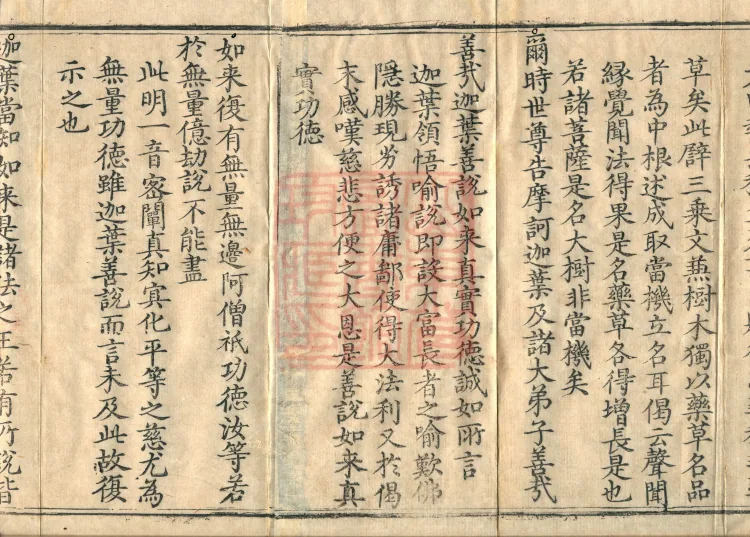 草矣此譬三乘文兼樹木獨以藥草名品
者為中根述成取當機立名耳偈云聲聞
緣覺聞法得果是名藥草各得增長是也
若諸菩薩是名大樹非當機矣
爾時世尊告摩訶迦葉及諸大弟子善哉
善哉迦葉善說如来真實功德誠如所言
迦葉領悟喻說即設大富長者之喻歎佛
隱勝現劣誘諸庸鄙使得大法利又於偈
末感嘆慈悲方便之大恩是善說如来真
實功德
如来復有無量無邊阿僧祇功德汝等若
於無量億劫說不能盡
此明一音密闡真知寔化平等之慈尤為
無量功德雖迦葉善說而言未及此故復
示之也
迦葉當知如来是諸法之王若有所說皆